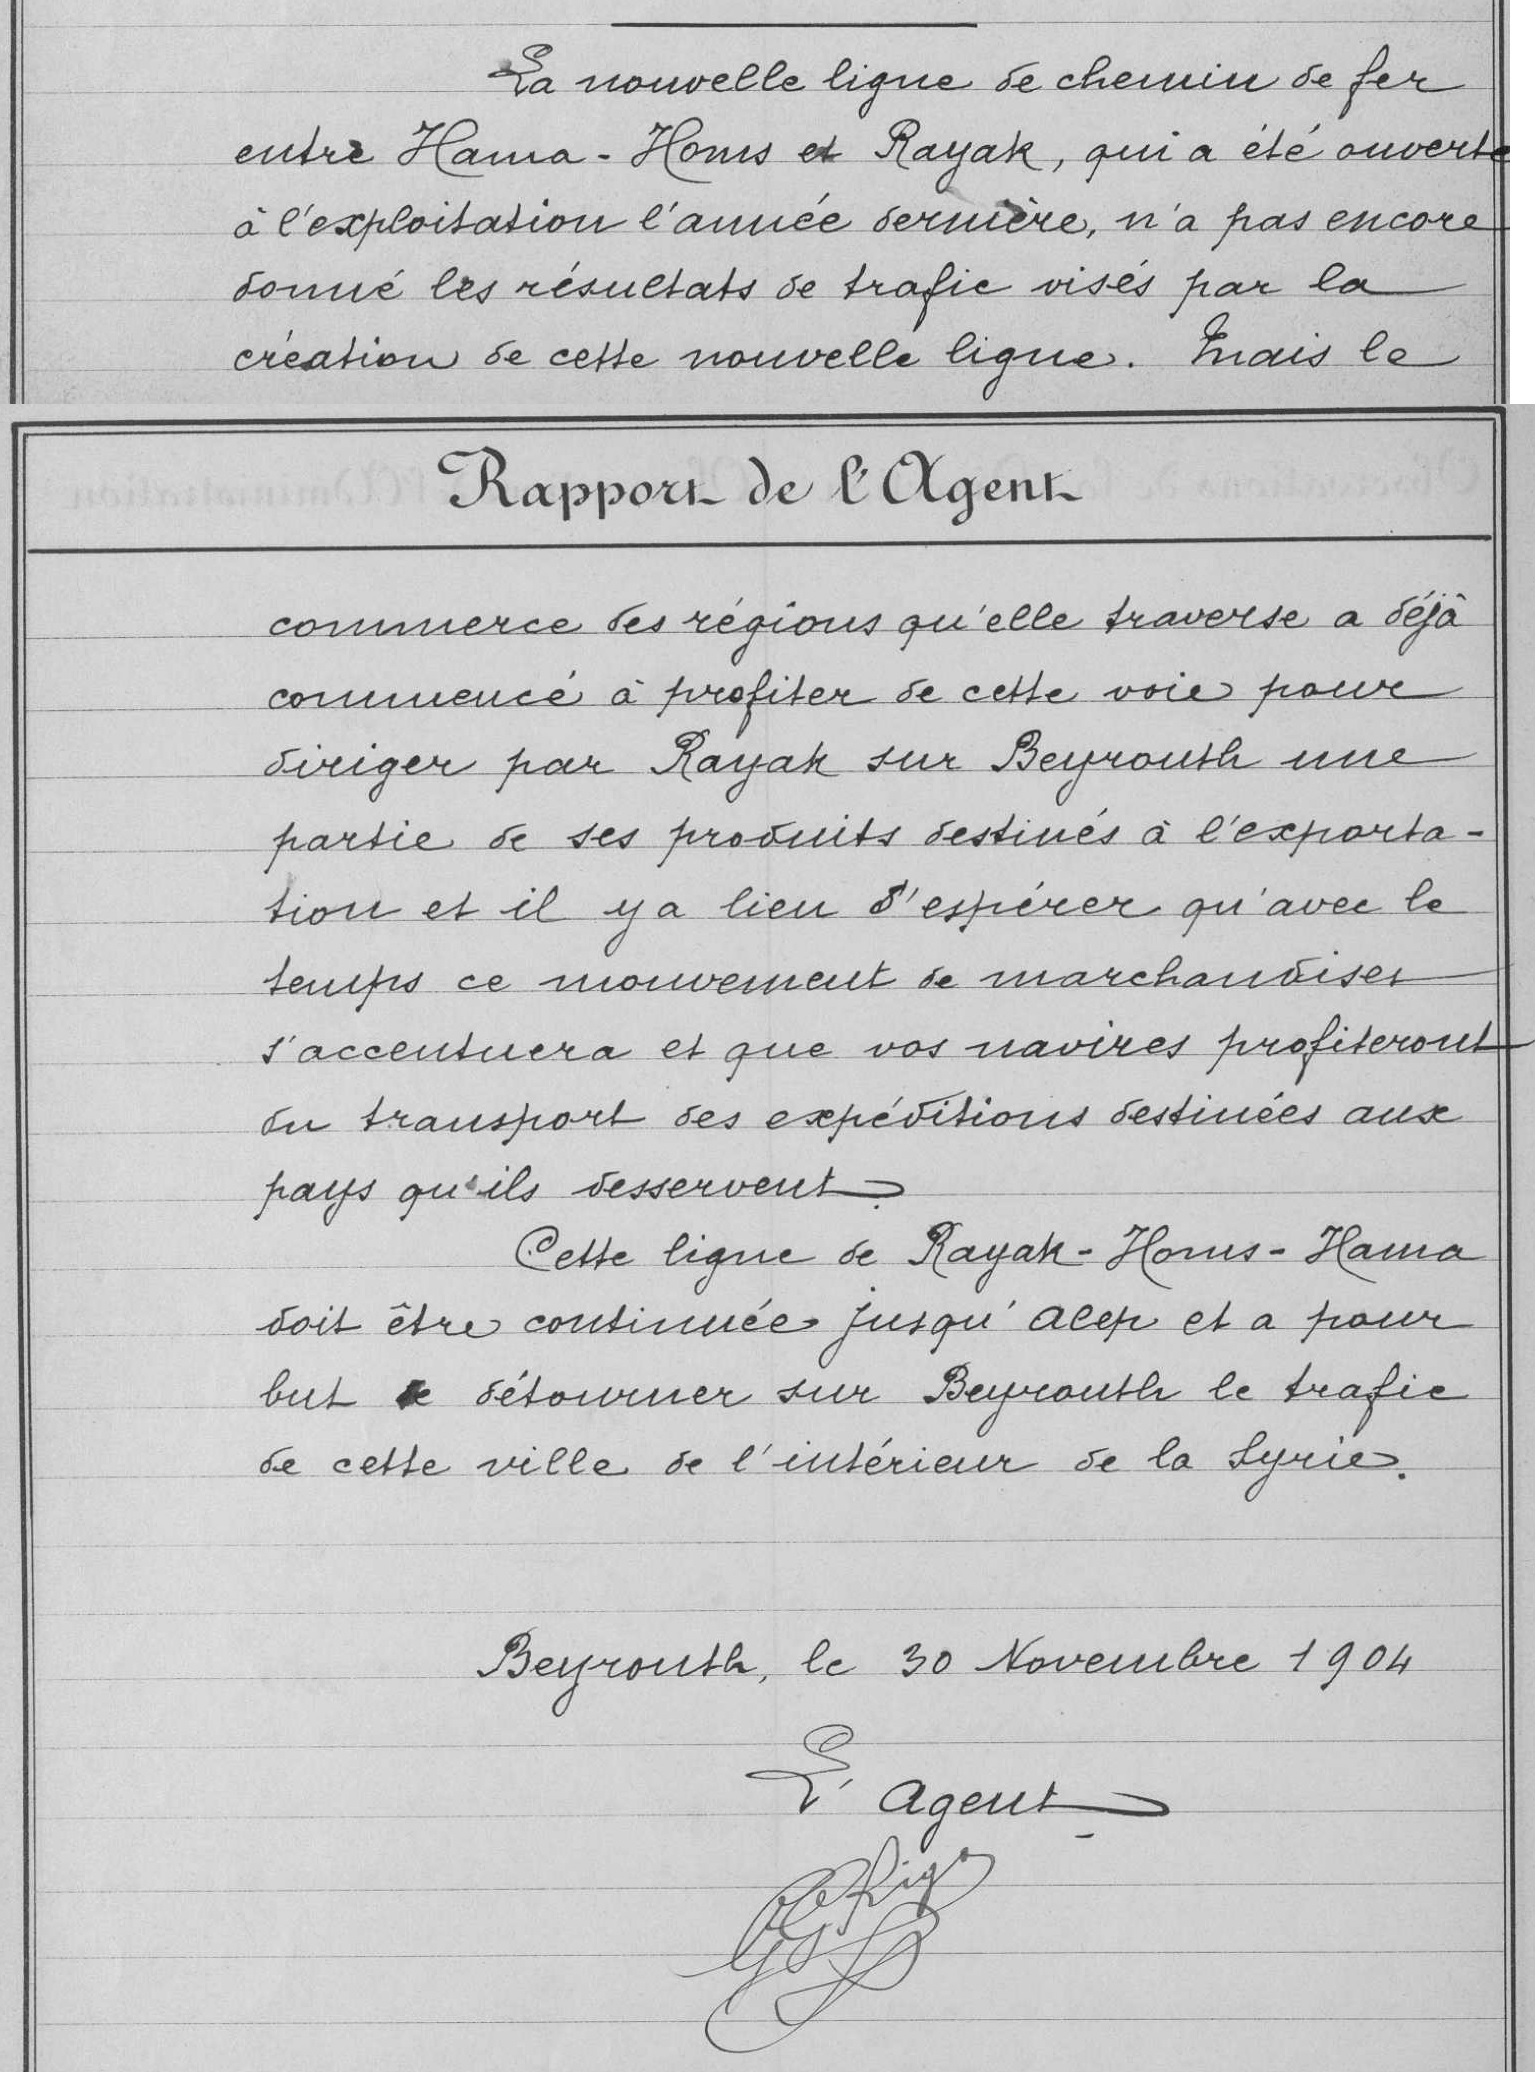 La nouvelle ligne de chemin de fer
entre Hama - Homs et Rayak, qui a été ouverte
à l'exploitation l'année dernière, n'a pas encore
donné les résultats de trafic visés par la
création de cette nouvelle ligne. Mais le
Rapport de l'Agent
commerce des régions qu'elle traverse a déjà
commencé à profiter de cette voie pour
diriger par Rayak sur Beyrouth une
partie de ses produits destinés à l'exporta-
tion et il y a lieu d'espérer qu'avec le
temps ce mouvement de marchandises
s'accentuera et que vos navires profiteront
du transport des expéditions destinées aux
pays qu'ils desservent.
Cette ligne de Rayak - Homs - Hama
doit être continuée jusqu'Alep et a pour
but de détourner sur Beyrouth le trafic
de cette ville de l'intérieur de la Syrie.
Beyrouth, le 30 Novembre 1904
L'Agent